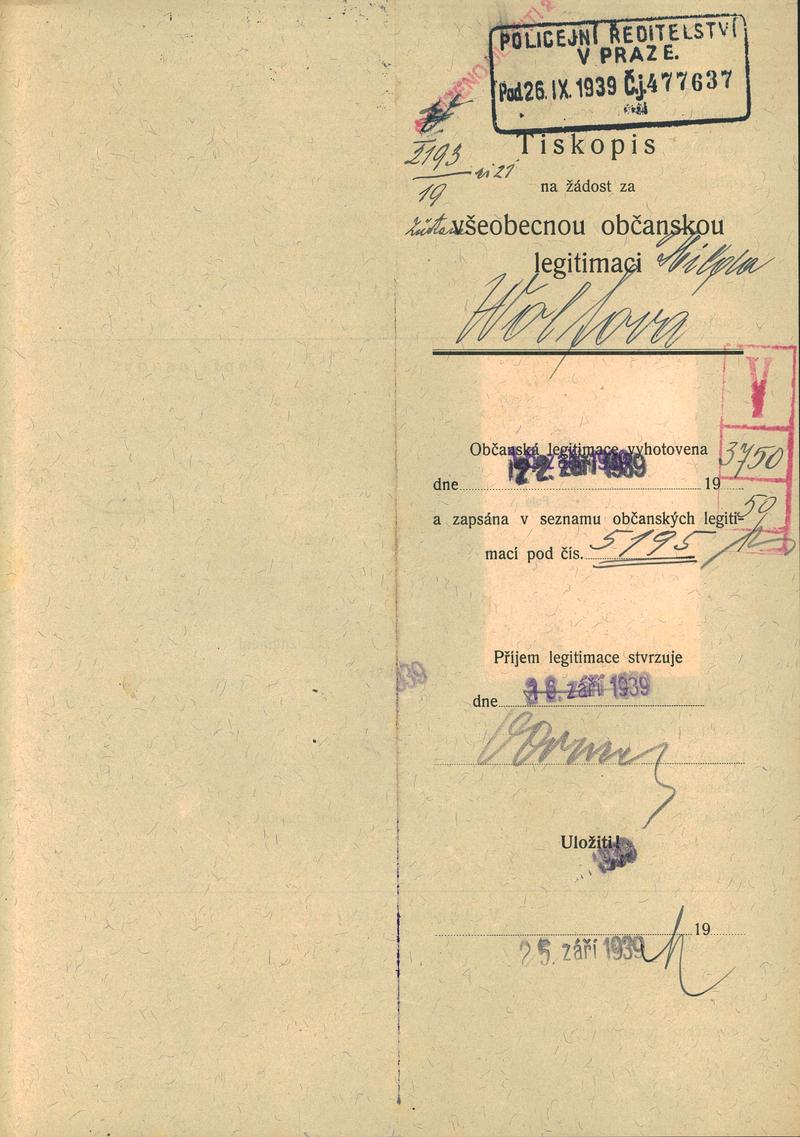 POLICEJNÍ ŘEDITELSTVÍ
V PRAZE.
Pod 26. IX. 1939 Č.j. 477637
2193
19
Tiskopis
na žádost za
všeobecnou občanskou
legitimaci Hilda
Wolfova
V
Občanská legitimace vyhotovena
3750
22. září 1939
dne 19
50
a zapsána v seznamu občanských legiti-
mací pod čís. 5195
Příjem legitimace stvrzuje
září 1939
dne
939
Uložiti!
19
25. září 1939